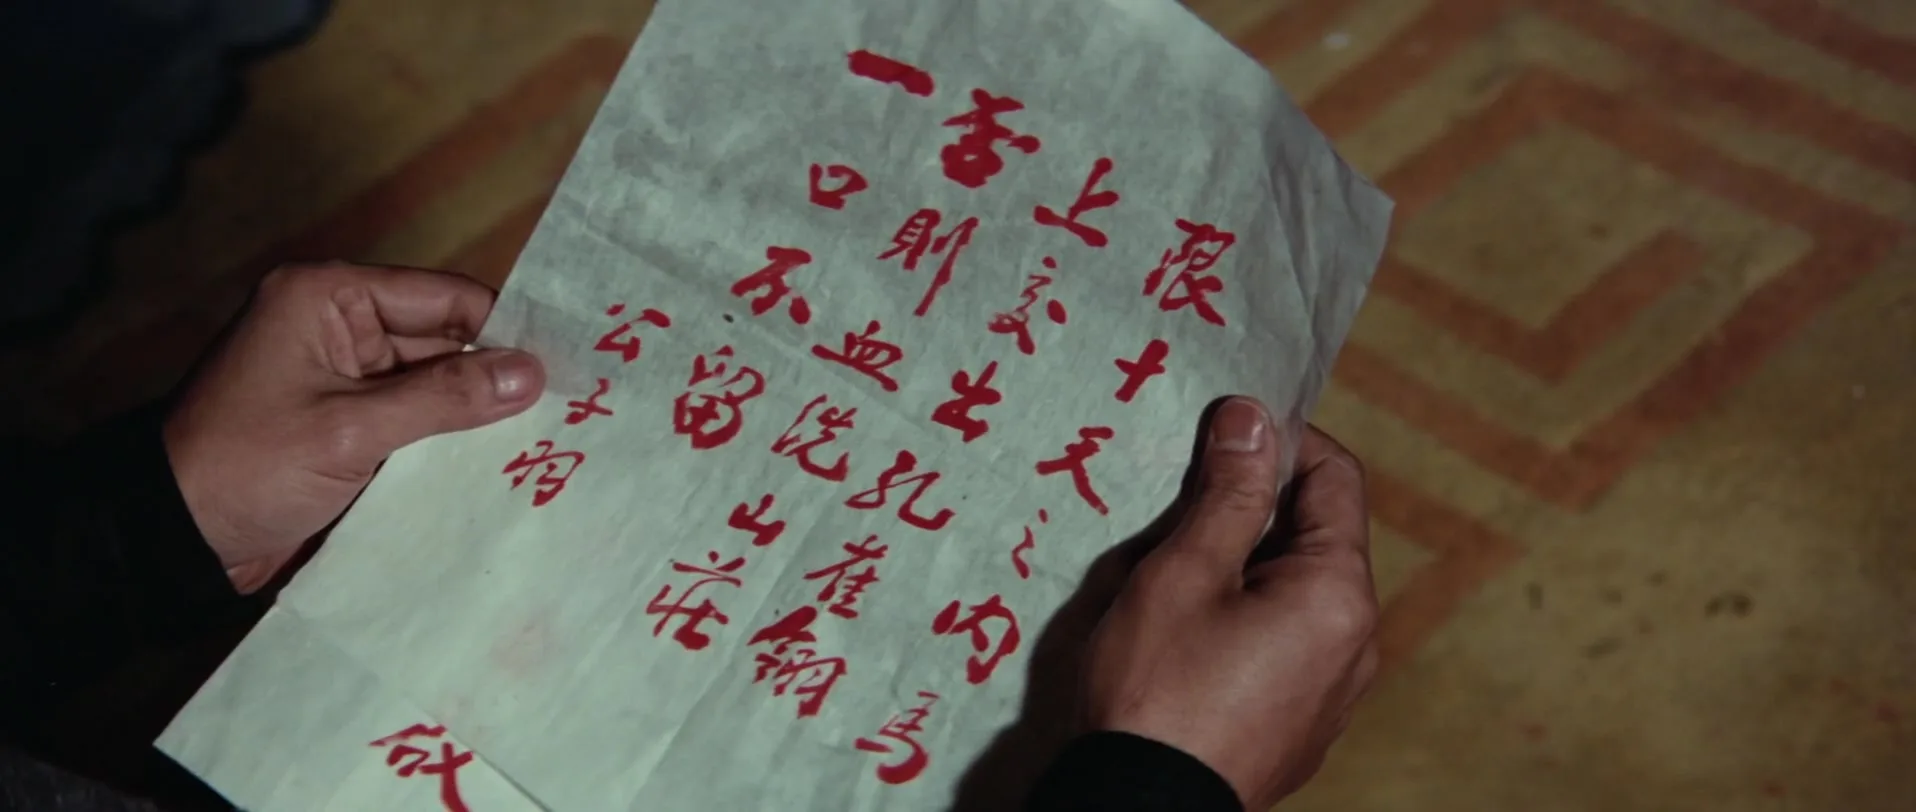 限十天之內馬
上交出孔雀翎
否則血洗山莊
一口不留
公子羽 啟